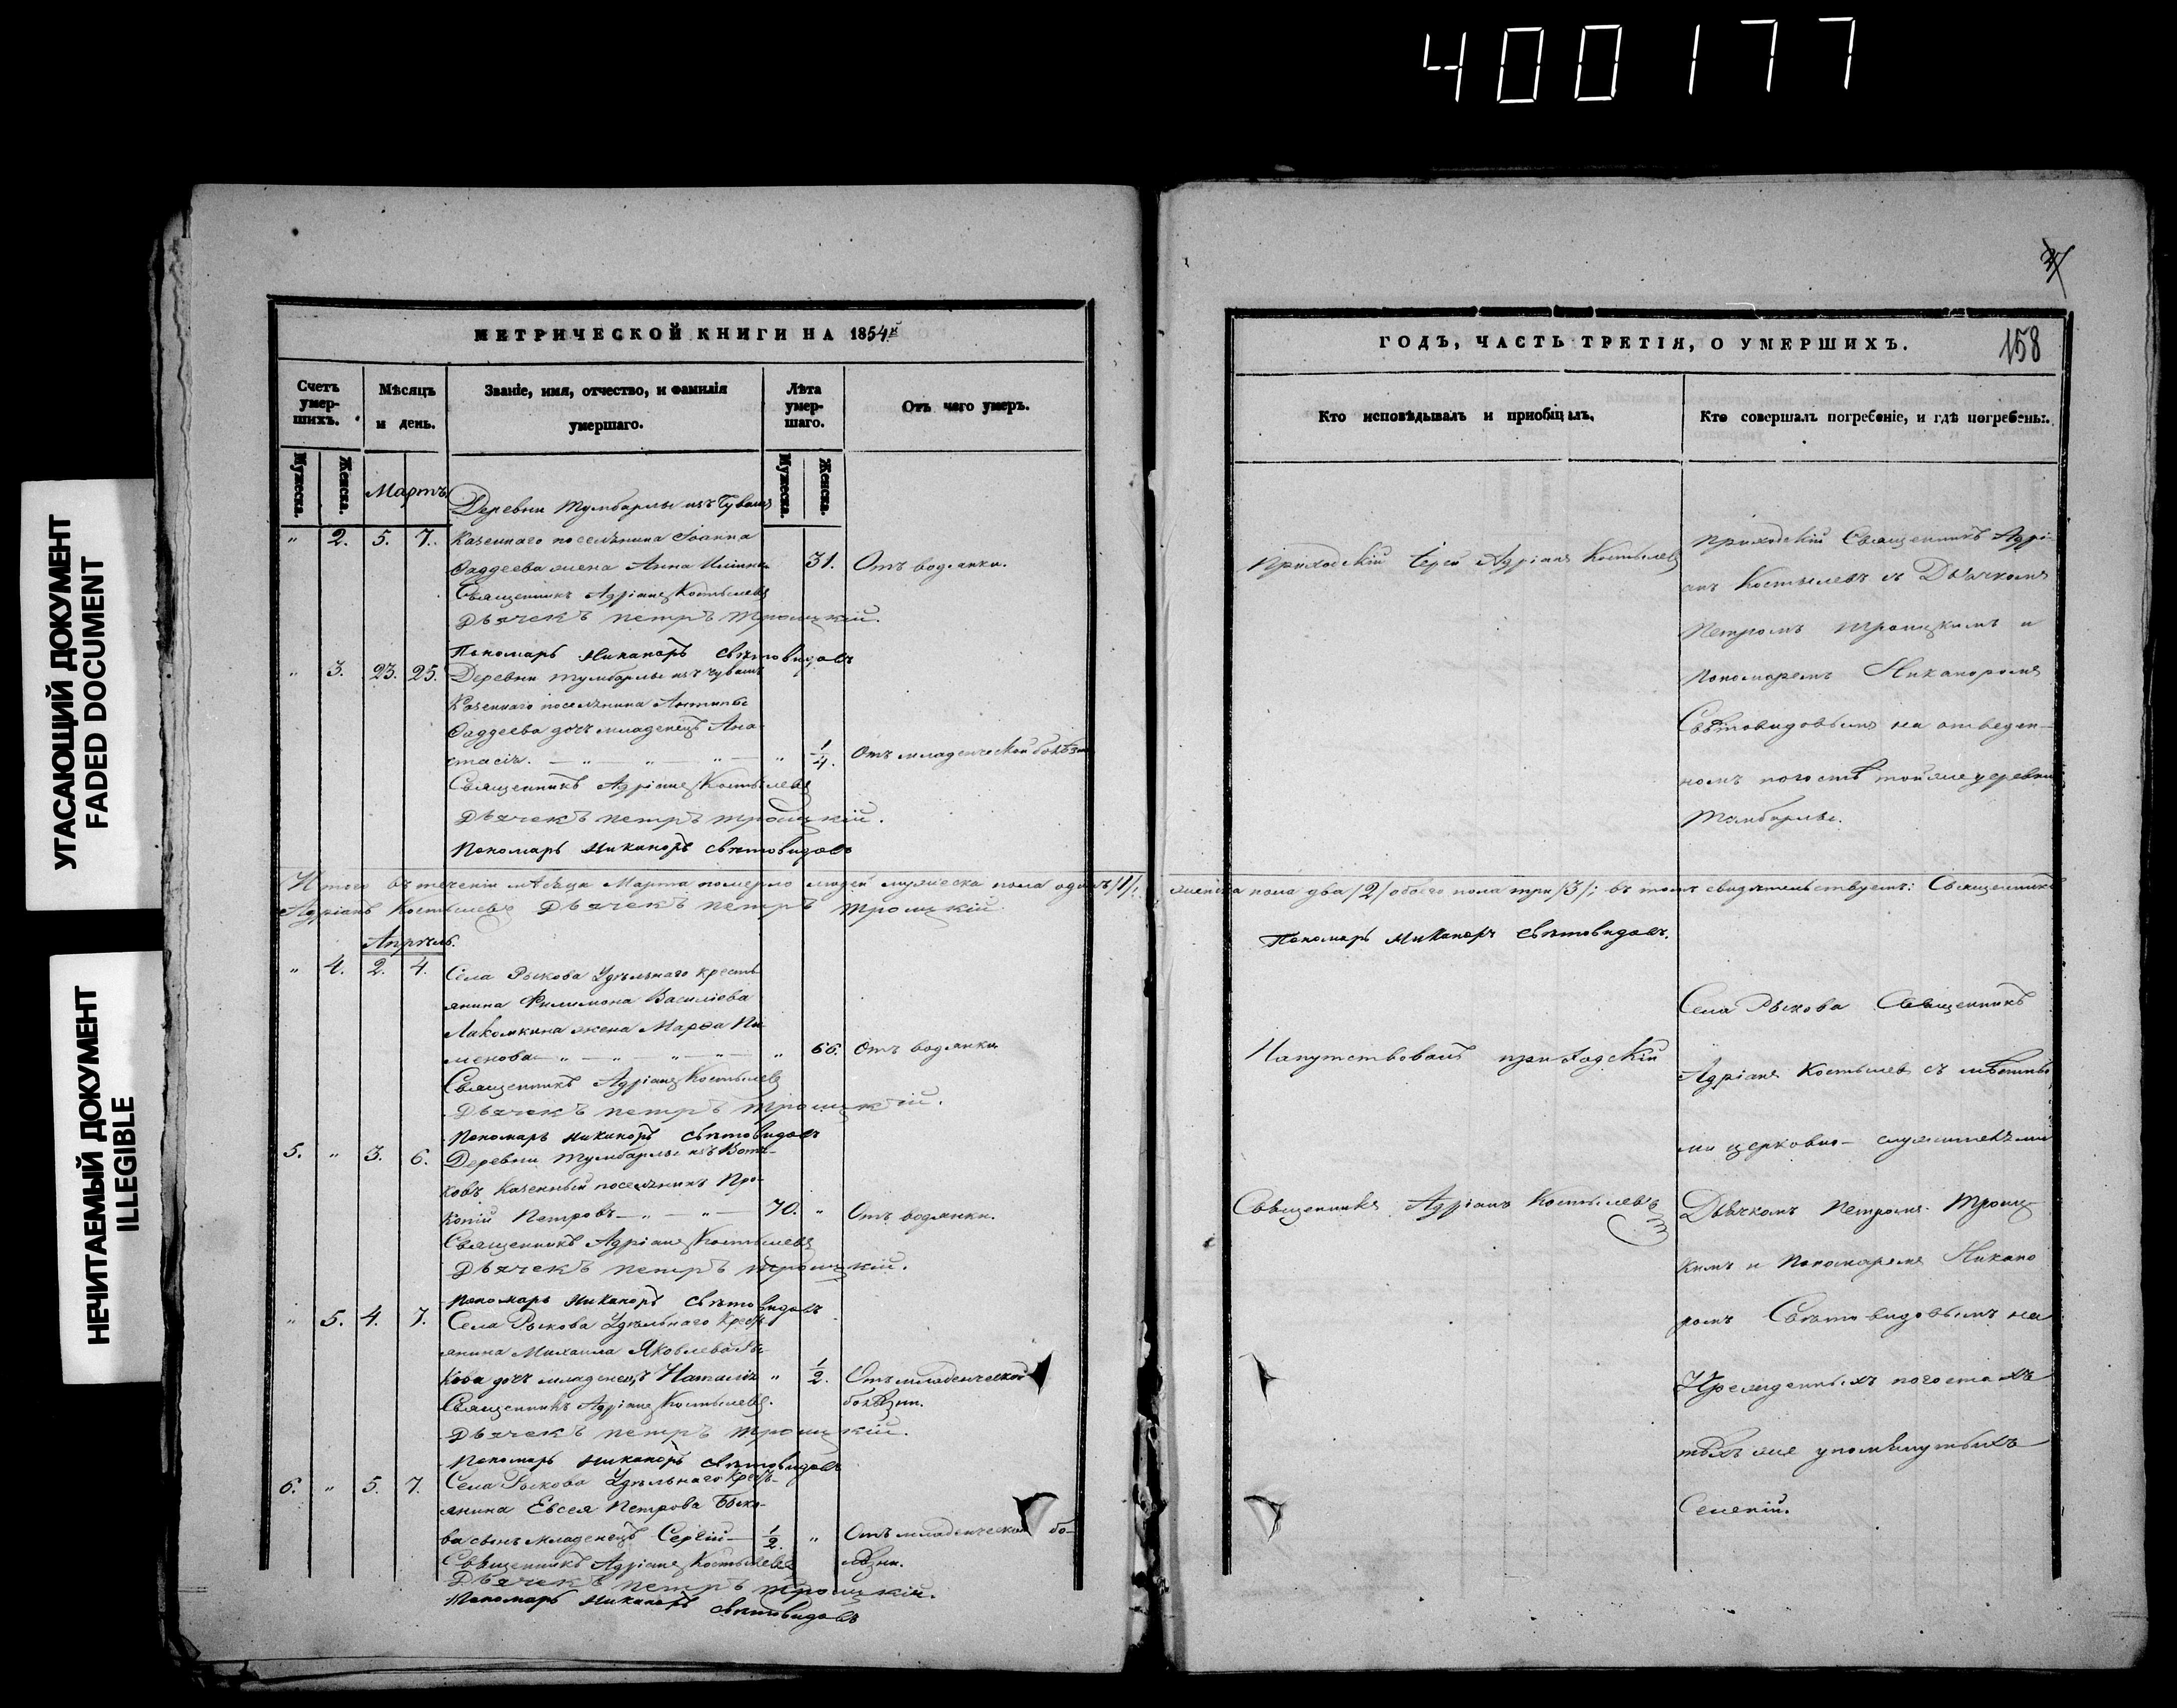 400177
УГАСАЮЩИЙ ДОКУМЕНТ
FADED DOCUMENT
НЕЧИТАЕМЫЙ ДОКУМЕНТ
ILLEGIBLE
МЕТРИЧЕСКОЙ КНИГИ НА 1854й
Счетъ умер-шихъ.
Мѣсяцъ и день.
Званіе, имя, отчество, и фамилія умершаго.
Лѣта умер-шаго.
Отъ чего умеръ.
Мужеска. Женска. Мужеска. Женска.
Мартъ
Деревни Тумбарлы изъ Чувашъ
" 2. 5. 7. Казеннаго поселянина Іоанна
Фаддеева жена Анна 31. Отъ водянки.
Священникъ Адріанъ Костылевъ
Дьячекъ Петръ Троицкій.
Пономарь Никаноръ Свѣтовидовъ
" 3. 23. 25. Деревни Тумбарлы изъ чувашъ
Казеннаго поселянина Антипы
Фаддеева дочь младенецъ Ана-
стасія. " 1/4. Отъ младенческой болѣзни
Священникъ Адріанъ Костылевъ
Дьячекъ Петръ Троицкій.
Пономарь Никаноръ Свѣтовидовъ
Итого въ теченіи мѣсяца Марта померло людей мужеска пола одинъ /1/,
Адріанъ Костылевъ Дьячекъ Петръ Троицкій
Апрѣль.
" 4. 2. 4. Села Рыкова Удѣльнаго кресть
янина Филимона Василіева
Лакомкина жена Марфа Пи
менова " 66. Отъ водянки
Священникъ Адріанъ Костылевъ
Дьячекъ Петръ Троицкій.
Пономарь Никаноръ Свѣтовидовъ
5. " 3. 6. Деревни Тумбарлы изъ Вотя-
ковъ Казенный поселянинъ Про-
копій Петровъ 70. " Отъ водянки.
Священникъ Адріанъ Костылевъ
Дьячекъ Петръ Троицкій.
Пономарь Никаноръ Свѣтовидовъ
" 5. 4. 7. Села Рыкова Удѣльнаго Кресть
янина Михаила Яковлева Бы-
кова дочь младенецъ Наталія " 1/2. Отъ младенческой
Священникъ Адріанъ Костылевъ. болѣзни.
Дьячекъ Петръ Троицкій.
Пономарь Никаноръ Свѣтовидовъ
6. " 5. 7. Села Рыкова Удѣльнаго Кресть-
янина Евсея Петрова Быко-
ва сынъ младенецъ Сергій 1/2. " Отъ младенческой бо-
Священникъ Адріанъ Костылевъ лѣзни.
Дьячекъ Петръ Троицкій.
Пономарь Никаноръ Свѣтовидовъ
ГОДЪ, ЧАСТЬ ТРЕТІЯ, О УМЕРШИХЪ.
158
Кто исповѣдывалъ и пріобщалъ.
Кто совершалъ погребеніе, и гдѣ погребены.
Приходскій Іерей Адріанъ Костылевъ
Приходскій Священникъ Адрі-
анъ Костылевъ съ Дьячкомъ
Петромъ Троицкимъ и
Пономаремъ Никаноромъ
Свѣтовидовымъ на отведен-
номъ погостѣ той же деревни
Тумбарлы.
женска пола два /2/ обоего пола три /3/; въ томъ свидѣтельствуемъ: Священникъ
Пономарь Никаноръ Свѣтовидовъ.
Напутствовалъ приходскій
Священникъ Адріанъ Костылевъ
Села Рыкова Священникъ
Адріанъ Костылевъ съ мѣстны
ми церковно-служителями
Дьячкомъ Петромъ Троиц
кимъ и Пономаремъ Никано
ромъ Свѣтовидовымъ на
Учрежденныхъ погостахъ
тѣхъ же упомянутыхъ
Селеній.